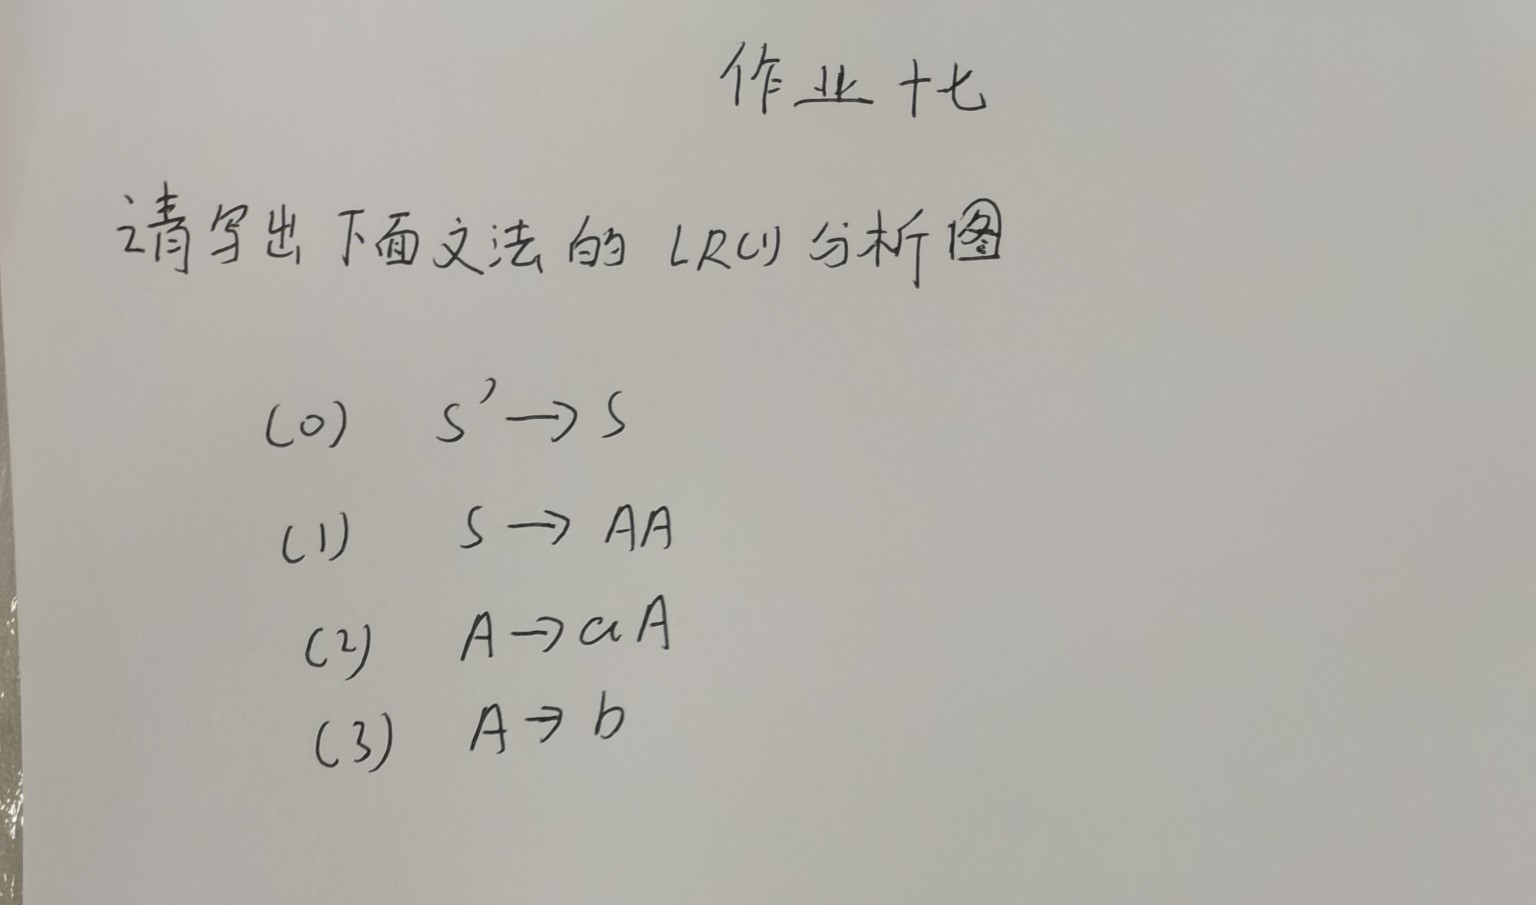 作业十七
请写出下面文法的 LR(1) 分析图
(0) S' → S
(1) S → AA
(2) A → aA
(3) A → b